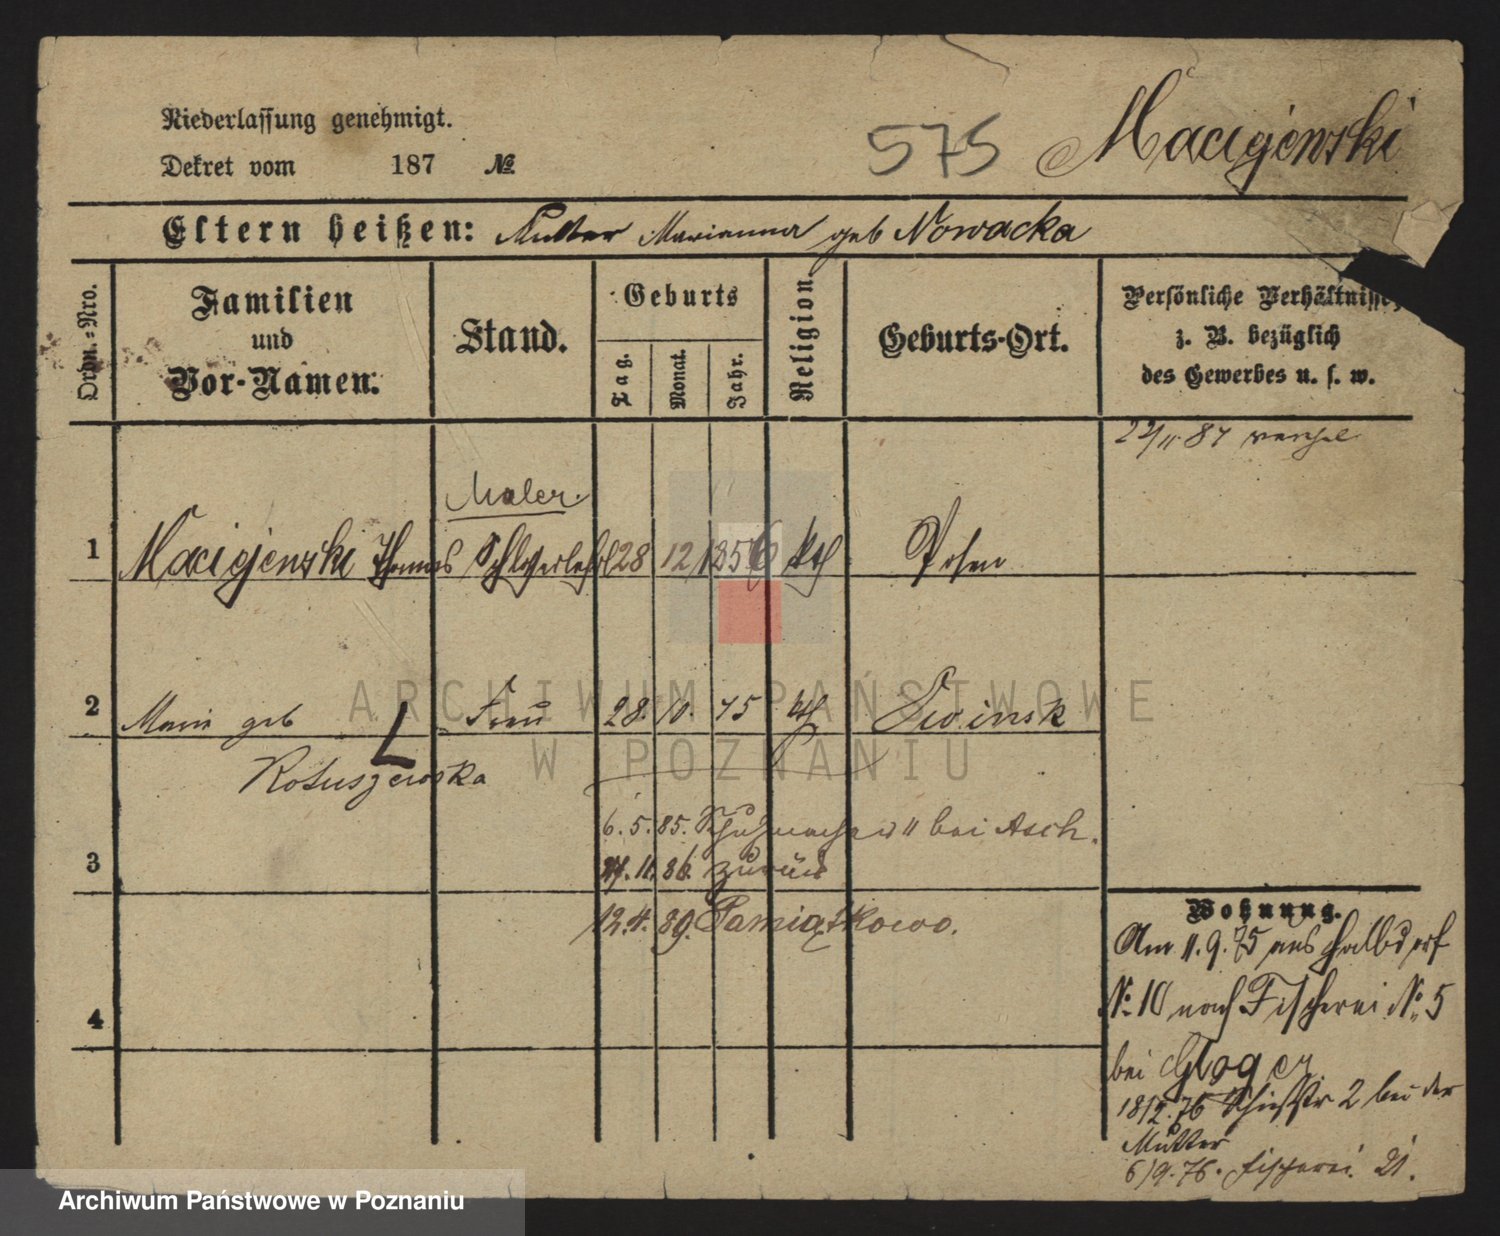 Niederlassung genehmigt.
Dekret vom 187 №
575 Macigjewski
Eltern heißen: Mutter Marianna geb Nowacka
Ordn.-Nro.
Familien
und
Vor-Namen.
Stand.
Geburts
Tag.
Monat.
Jahr.
Religion.
Geburts-Ort.
Persönliche Verhältnisse,
z. B. bezüglich
des Gewerbes u. s. w.
22/11 87
Maler.
1 Macigjewski Thomas Schlosserlehrl 28 12 1856 kth Posen
2 Marie geb Frau 28. 10. 75 kth
Rotuszewska
6. 5. 85. bei Asch.
3 11. 86. zurück
12. 4. 89. Pamiątkowo.
4
Wohnung.
Am 11. 9. 75 aus Halbdorf
№ 10 nach Fischerei № 5
bei Gloger
18/2. 76 Schießstr 2 bei der
Mutter
6/9. 76. Fischerei 21.
ARCHIWUM PAŃSTWOWE
W POZNANIU
Archiwum Państwowe w Poznaniu